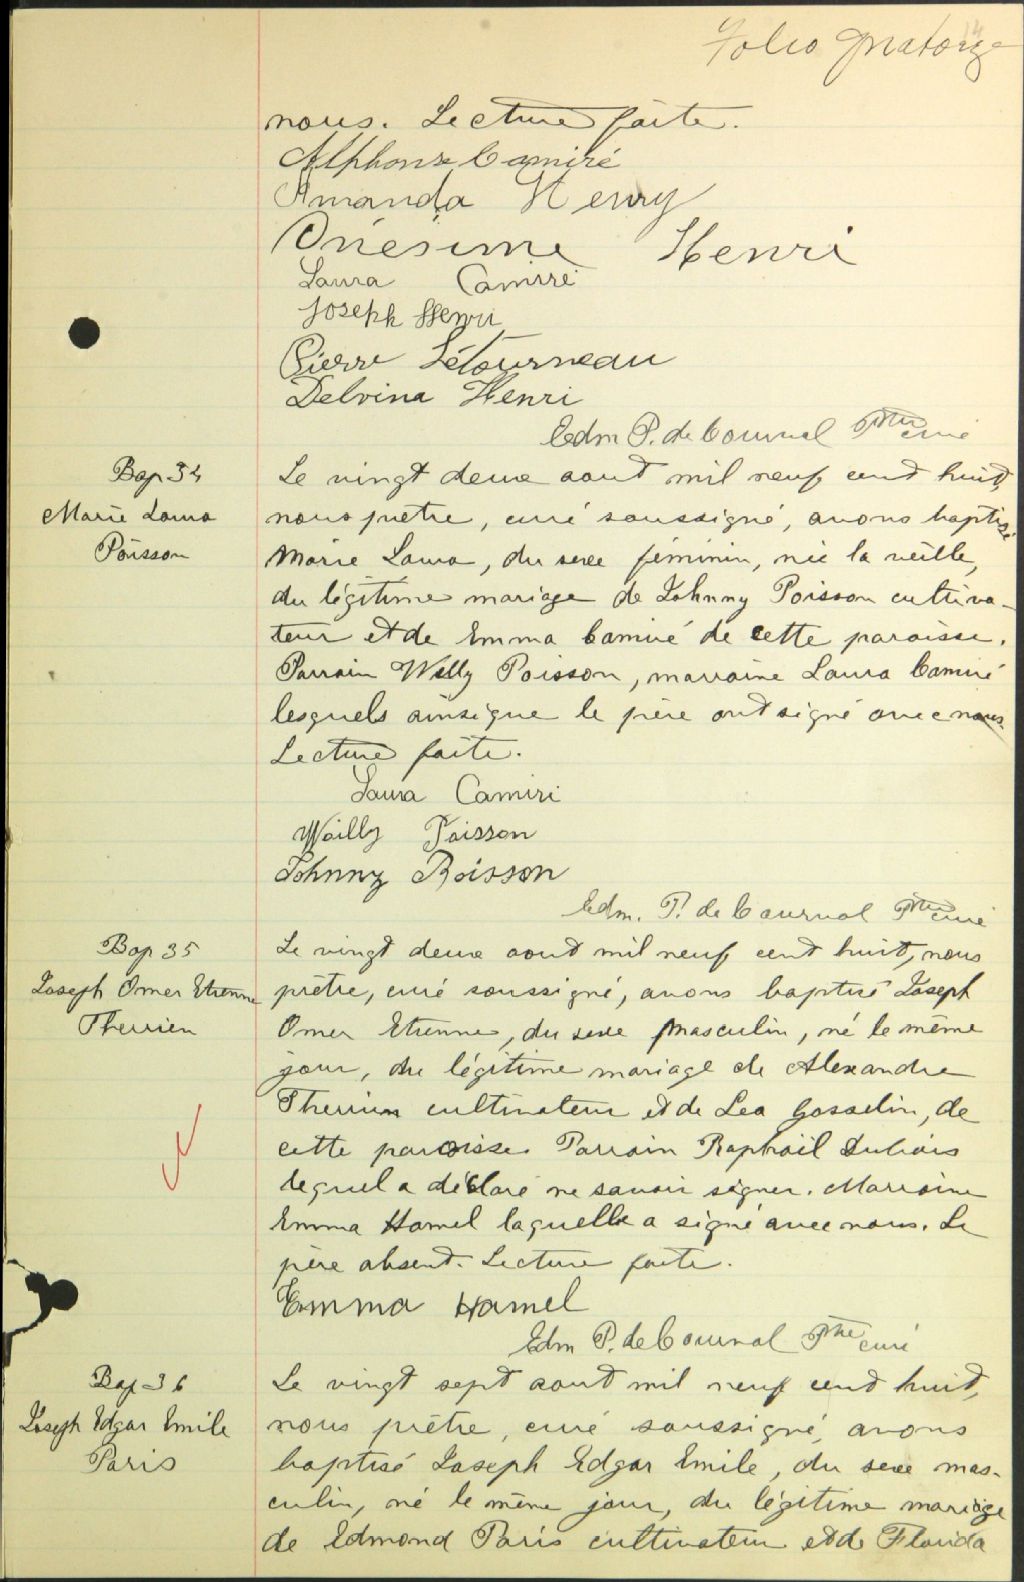 Folio quatorze
14
nous. Lecture faite.
Alphonse Camiré
Amanda Henry
Onésime Henri
Laura Camiré
Joseph Henri
Pierre Létourneau
Delvina Henri
Edm P. de Cournal Ptre curé
Bap 34
Marie Laura
Poisson
Le vingt deux aout mil neuf cent huit,
nous prêtre, curé soussigné, avons baptisé
Marie Laura, du sexe féminin, née la veille,
du légitime mariage de Johnny Poisson cultiva-
teur et de Emma Camiré de cette paroisse.
Parrain Willy Poisson, marraine Laura Camiré
lesquels ainsi que le père ont signé avec nous.
Lecture faite.
Laura Camiri
Wailly Poisson
Johnny Poisson
Edm. P. de Cournal Ptre curé
Bap 35
Joseph Omer Etienne
Therrien
Le vingt deux aout mil neuf cent huit, nous
prêtre, curé soussigné, avons baptisé Joseph
Omer Etienne, du sexe masculin, né le même
jour, du légitime mariage de Alexandre
Therrien cultivateur et de Lea Gosselin, de
cette paroisse. Parrain Raphaïl Dubois
lequel a déclaré ne savoir signer. Marraine
Emma Hamel laquelle a signé avec nous. Le
père absent. Lecture faite.
Emma Hamel
Edm P. de Cournal Ptre curé
Bap 36
Joseph Edgar Emile
Paris
Le vingt sept aout mil neuf cent huit,
nous prêtre, curé soussigné, avons
baptisé Joseph Edgar Emile, du sexe mas-
culin, né le même jour, du légitime mariage
de Edmond Paris cultivateur et de Florida